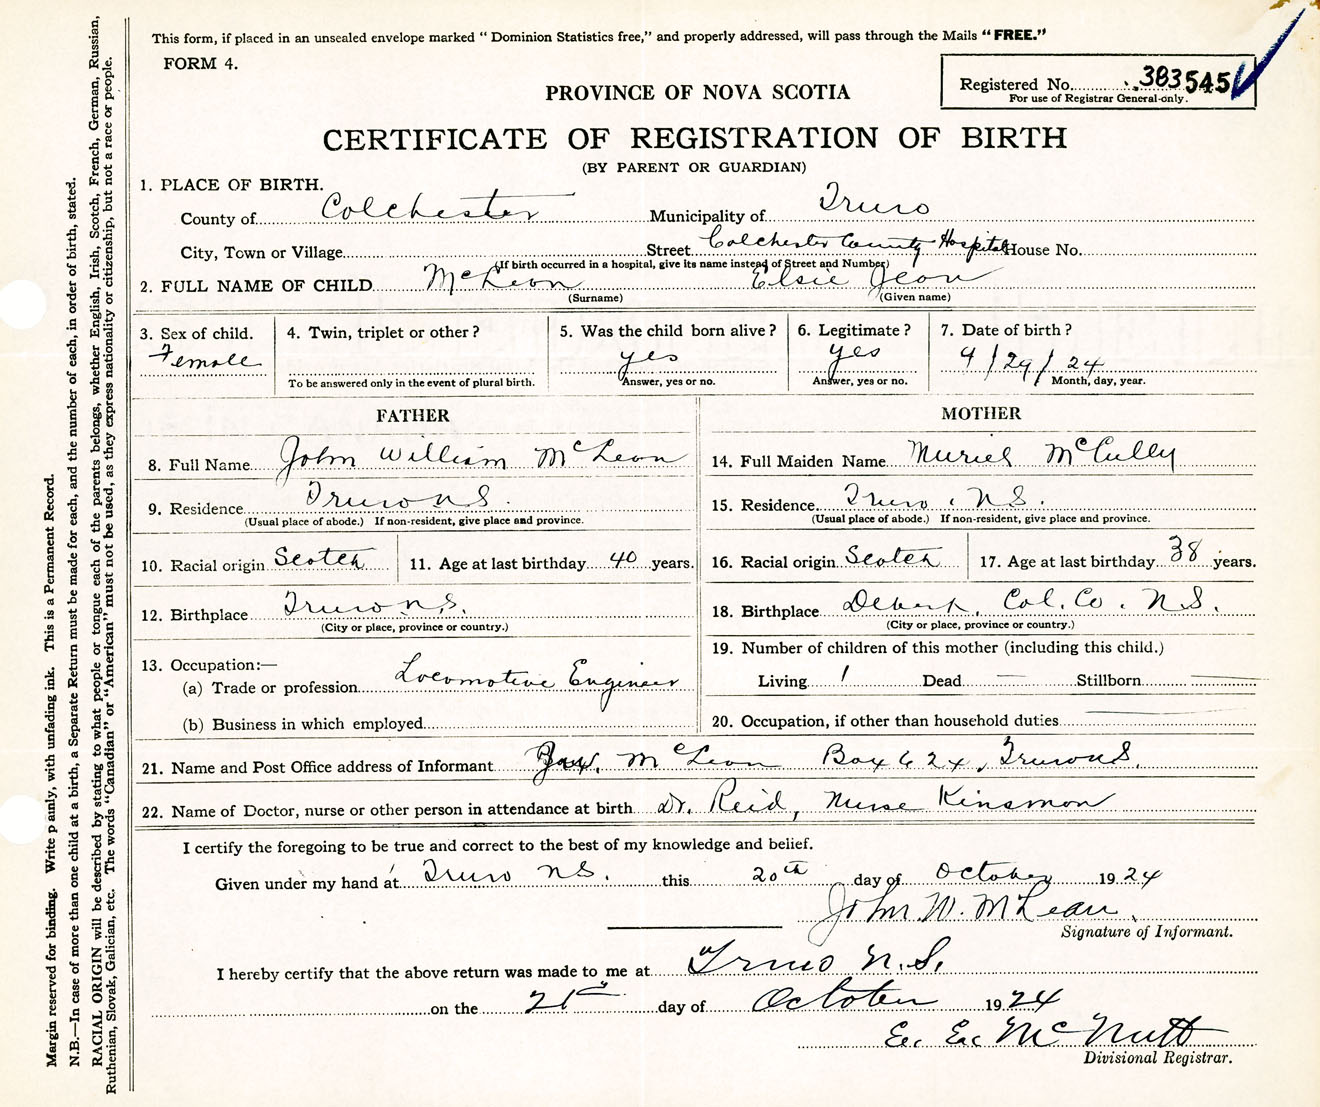 This form, if placed in an unsealed envelope marked "Dominion Statistics free," and properly addressed, will pass through the Mails "FREE."
FORM 4.
Registered No. 383545
For use of Registrar General only.
PROVINCE OF NOVA SCOTIA
CERTIFICATE OF REGISTRATION OF BIRTH
(BY PARENT OR GUARDIAN)
1. PLACE OF BIRTH.
County of Colchester Municipality of Truro
City, Town or Village Street Colchester County Hospital House No.
(If birth occurred in a hospital, give its name instead of Street and Number)
2. FULL NAME OF CHILD McLean Elsie Jean
(Surname) (Given name)
3. Sex of child. 4. Twin, triplet or other? 5. Was the child born alive? 6. Legitimate? 7. Date of birth?
Female yes yes 9/29/24
To be answered only in the event of plural birth. Answer, yes or no. Answer, yes or no. Month, day, year.
FATHER
8. Full Name John William McLean
9. Residence Truro N.S.
(Usual place of abode.) If non-resident, give place and province.
10. Racial origin Scotch 11. Age at last birthday 40 years.
12. Birthplace Truro N.S.
(City or place, province or country.)
13. Occupation:—
(a) Trade or profession Locomotive Engineer
(b) Business in which employed
MOTHER
14. Full Maiden Name Muriel McCully
15. Residence Truro, N.S.
(Usual place of abode.) If non-resident, give place and province.
16. Racial origin Scotch 17. Age at last birthday 38 years.
18. Birthplace Debert, Col. Co. N.S.
(City or place, province or country.)
19. Number of children of this mother (including this child.)
Living 1 Dead — Stillborn —
20. Occupation, if other than household duties —
21. Name and Post Office address of Informant McLean Box 624, Truro N.S.
22. Name of Doctor, nurse or other person in attendance at birth Dr. Reid, Nurse Kinsman
I certify the foregoing to be true and correct to the best of my knowledge and belief.
Given under my hand at Truro N.S. this 20th day of October 1924
John W. McLean.
Signature of Informant.
I hereby certify that the above return was made to me at Truro N.S.
on the 21st day of October 1924
McNutt
Divisional Registrar.
Margin reserved for binding. Write plainly, with unfading ink. This is a Permanent Record.
N.B.—In case of more than one child at a birth, a Separate Return must be made for each, and the number of each, in order of birth, stated.
RACIAL ORIGIN will be described by stating to what people or tongue each of the parents belongs, whether English, Irish, Scotch, French, German, Russian,
Ruthenian, Slovak, Galician, etc. The words "Canadian" or "American" must not be used, as they express nationality or citizenship, but not a race or people.